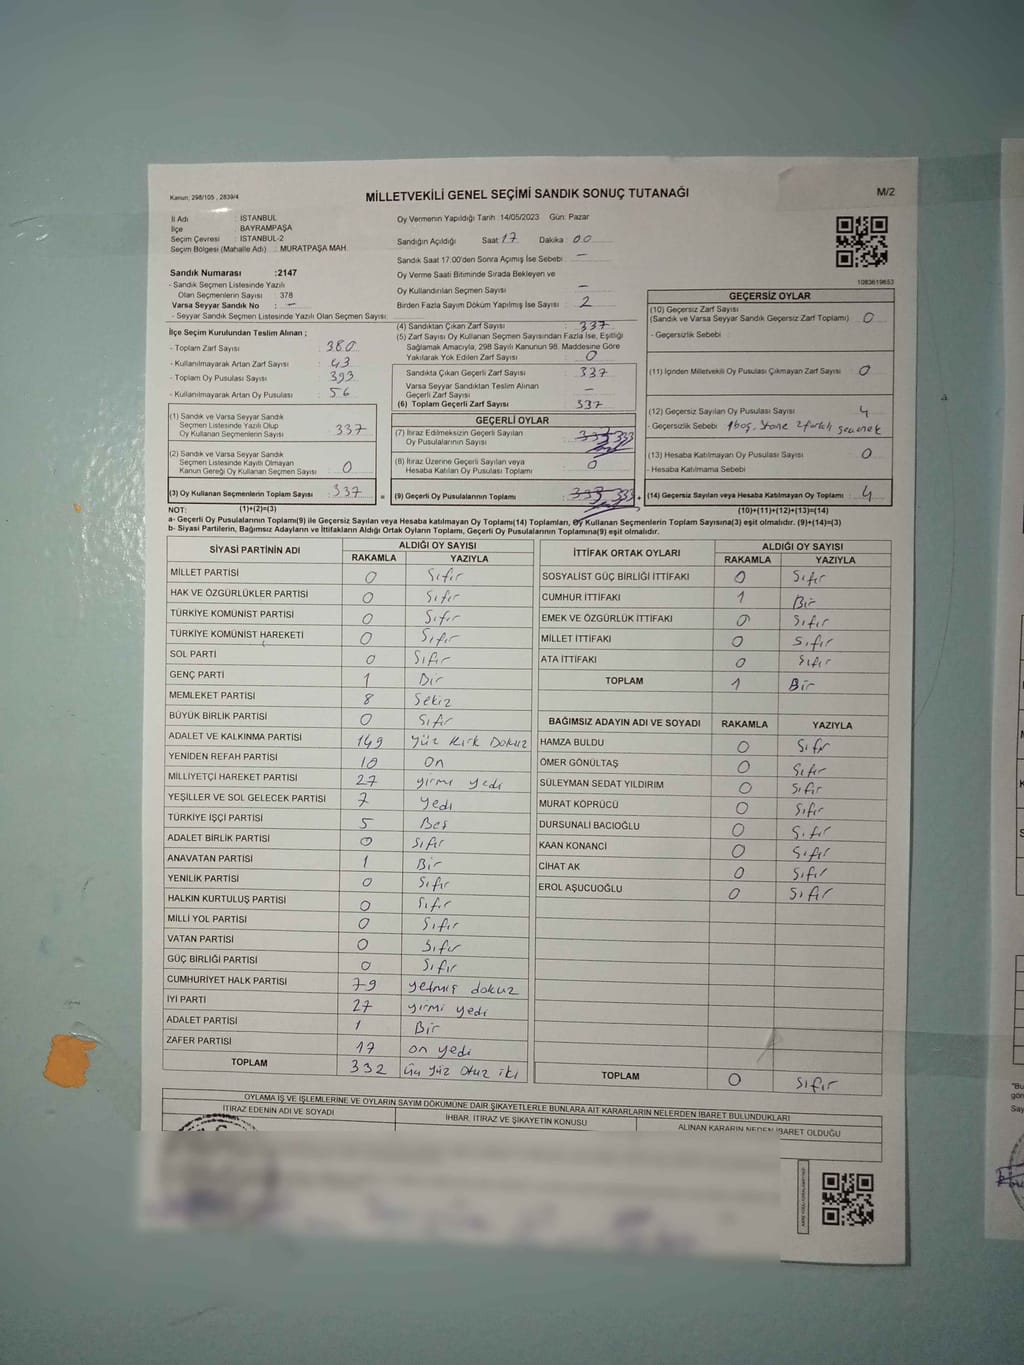 Kanun; 298/105 , 2839/4
MİLLETVEKİLİ GENEL SEÇİMİ SANDIK SONUÇ TUTANAĞI
M/2
İl Adı : İSTANBUL
İlçe : BAYRAMPAŞA
Seçim Çevresi : İSTANBUL-2
Seçim Bölgesi (Mahalle Adı) : MURATPAŞA MAH.
Sandık Numarası :2147
- Sandık Seçmen Listesinde Yazılı
Olan Seçmenlerin Sayısı : 378
Varsa Seyyar Sandık No : -
- Seyyar Sandık Seçmen Listesinde Yazılı Olan Seçmen Sayısı:
Oy Vermenin Yapıldığı Tarih :14/05/2023 Gün: Pazar
Sandığın Açıldığı Saat: 17 Dakika : 00
Sandık Saat 17:00'den Sonra Açımış İse Sebebi : -
Oy Verme Saati Bitiminde Sırada Bekleyen ve
Oy Kullandırılan Seçmen Sayısı : -
Birden Fazla Sayım Döküm Yapılmış İse Sayısı : 2
1083619653
İlçe Seçim Kurulundan Teslim Alınan ;
- Toplam Zarf Sayısı : 380
- Kullanılmayarak Artan Zarf Sayısı : 43
- Toplam Oy Pusulası Sayısı : 393
- Kullanılmayarak Artan Oy Pusulası : 56
(1) Sandık ve Varsa Seyyar Sandık
Seçmen Listesinde Yazılı Olup
Oy Kullanan Seçmenlerin Sayısı : 337
(2) Sandık ve Varsa Seyyar Sandık
Seçmen Listesinde Kayıtlı Olmayan
Kanun Gereği Oy Kullanan Seçmen Sayısı : 0
(3) Oy Kullanan Seçmenlerin Toplam Sayısı : 337 =
(4) Sandıktan Çıkan Zarf Sayısı : 337
(5) Zarf Sayısı Oy Kullanan Seçmen Sayısından Fazla İse, Eşitliği
Sağlamak Amacıyla, 298 Sayılı Kanunun 98. Maddesine Göre
Yakılarak Yok Edilen Zarf Sayısı : 0
Sandıkta Çıkan Geçerli Zarf Sayısı : 337
Varsa Seyyar Sandıktan Teslim Alınan
Geçerli Zarf Sayısı : -
(6) Toplam Geçerli Zarf Sayısı : 337
GEÇERLİ OYLAR
(7) İtiraz Edilmeksizin Geçerli Sayılan
Oy Pusulalarının Sayısı : 333
(8) İtiraz Üzerine Geçerli Sayılan veya
Hesaba Katılan Oy Pusulası Toplamı : 0
(9) Geçerli Oy Pusulalarının Toplamı : 333 +
GEÇERSİZ OYLAR
(10) Geçersiz Zarf Sayısı
(Sandık ve Varsa Seyyar Sandık Geçersiz Zarf Toplamı) : 0
- Geçersizlik Sebebi :
(11) İçinden Milletvekili Oy Pusulası Çıkmayan Zarf Sayısı : 0
(12) Geçersiz Sayılan Oy Pusulası Sayısı : 4
- Geçersizlik Sebebi : 1boş, 3tane 2farklı seçenek
(13) Hesaba Katılmayan Oy Pusulası Sayısı : 0
- Hesaba Katılmama Sebebi :
(14) Geçersiz Sayılan veya Hesaba Katılmayan Oy Toplamı : 4
NOT: (1)+(2)=(3) (10)+(11)+(12)+(13)=(14)
a- Geçerli Oy Pusulalarının Toplamı(9) ile Geçersiz Sayılan veya Hesaba katılmayan Oy Toplamı(14) Toplamları, Oy Kullanan Seçmenlerin Toplam Sayısına(3) eşit olmalıdır. (9)+(14)=(3)
b- Siyasi Partilerin, Bağımsız Adayların ve İttifakların Aldığı Ortak Oyların Toplamı, Geçerli Oy Pusulalarının Toplamına(9) eşit olmalıdır.
SİYASİ PARTİNİN ADI ALDIĞI OY SAYISI
RAKAMLA YAZIYLA
MİLLET PARTİSİ 0 Sıfır
HAK VE ÖZGÜRLÜKLER PARTİSİ 0 Sıfır
TÜRKİYE KOMÜNİST PARTİSİ 0 Sıfır
TÜRKİYE KOMÜNİST HAREKETİ 0 Sıfır
SOL PARTİ 0 Sıfır
GENÇ PARTİ 1 Bir
MEMLEKET PARTİSİ 8 Sekiz
BÜYÜK BİRLİK PARTİSİ 0 Sıfır
ADALET VE KALKINMA PARTİSİ 149 Yüz Kırk Dokuz
YENİDEN REFAH PARTİSİ 10 On
MİLLİYETÇİ HAREKET PARTİSİ 27 yirmi yedi
YEŞİLLER VE SOL GELECEK PARTİSİ 7 yedi
TÜRKİYE İŞÇİ PARTİSİ 5 Beş
ADALET BİRLİK PARTİSİ 0 Sıfır
ANAVATAN PARTİSİ 1 Bir
YENİLİK PARTİSİ 0 Sıfır
HALKIN KURTULUŞ PARTİSİ 0 Sıfır
MİLLİ YOL PARTİSİ 0 Sıfır
VATAN PARTİSİ 0 Sıfır
GÜÇ BİRLİĞİ PARTİSİ 0 Sıfır
CUMHURİYET HALK PARTİSİ 79 yetmiş dokuz
İYİ PARTİ 27 yirmi yedi
ADALET PARTİSİ 1 Bir
ZAFER PARTİSİ 17 on yedi
TOPLAM 332 Üç Yüz Otuz iki
İTTİFAK ORTAK OYLARI ALDIĞI OY SAYISI
RAKAMLA YAZIYLA
SOSYALİST GÜÇ BİRLİĞİ İTTİFAKI 0 Sıfır
CUMHUR İTTİFAKI 1 Bir
EMEK VE ÖZGÜRLÜK İTTİFAKI 0 Sıfır
MİLLET İTTİFAKI 0 Sıfır
ATA İTTİFAKI 0 Sıfır
TOPLAM 1 Bir
BAĞIMSIZ ADAYIN ADI VE SOYADI RAKAMLA YAZIYLA
HAMZA BULDU 0 Sıfır
ÖMER GÖNÜLTAŞ 0 Sıfır
SÜLEYMAN SEDAT YILDIRIM 0 Sıfır
MURAT KÖPRÜCÜ 0 Sıfır
DURSUNALİ BACIOĞLU 0 Sıfır
KAAN KONANCİ 0 Sıfır
CİHAT AK 0 Sıfır
EROL AŞUCUOĞLU 0 Sıfır
TOPLAM 0 Sıfır
OYLAMA İŞ VE İŞLEMLERİNE VE OYLARIN SAYIM DÖKÜMÜNE DAİR ŞİKAYETLERLE BUNLARA AİT KARARLARIN NELERDEN İBARET BULUNDUKLARI
İTİRAZ EDENİN ADI VE SOYADI İHBAR, İTİRAZ VE ŞİKAYETİN KONUSU ALINAN KARARIN NEDEN İBARET OLDUĞU